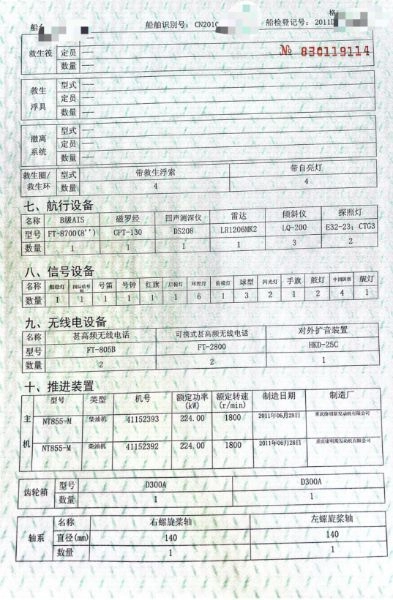 船名 船舶识别号: CN201C 船检登记号: 2011D
№ 830119114
救生筏 定员 ——
数量 ——
救生浮具 型式 ——
定员 ——
数量 ——
撤离系统 型式 ——
数量 ——
救生圈/救生环 带救生浮索 带自亮灯
4 4
七、航行设备
名称 B级AIS 磁罗经 回声测深仪 雷达 倾斜仪 探照灯
型号 FT-8700(8'') CPT-130 DS208 LR1206MK2 LQ-200 E32-23; CTG3
数量 1 1 1 1 3 2
八、信号设备
名称 号笛 号钟 红旗 环照灯 球型 闪光灯 手旗 鼓灯 中国国旗 舷灯
数量 1 1 1 1 1 1 6 1 3 2 1 2 4 1
九、无线电设备
名称 甚高频无线电话 可携式甚高频无线电话 对外扩音装置
型号 FT-805B FT-2800 HKD-25C
数量 2 2 1
十、推进装置
主机 型号 类型 机号 额定功率(kW) 额定转速(r/min) 制造日期 制造厂
NT855-M 柴油机 41152393 224.00 1800 2011年06月28日 重庆康明斯发动机有限公司
NT855-M 柴油机 41152392 224.00 1800 2011年06月28日 重庆康明斯发动机有限公司
齿轮箱 型号 D300A D300A
数量 1 1
轴系 名称 右螺旋桨轴 左螺旋桨轴
直径(mm) 140 140
数量 1 1